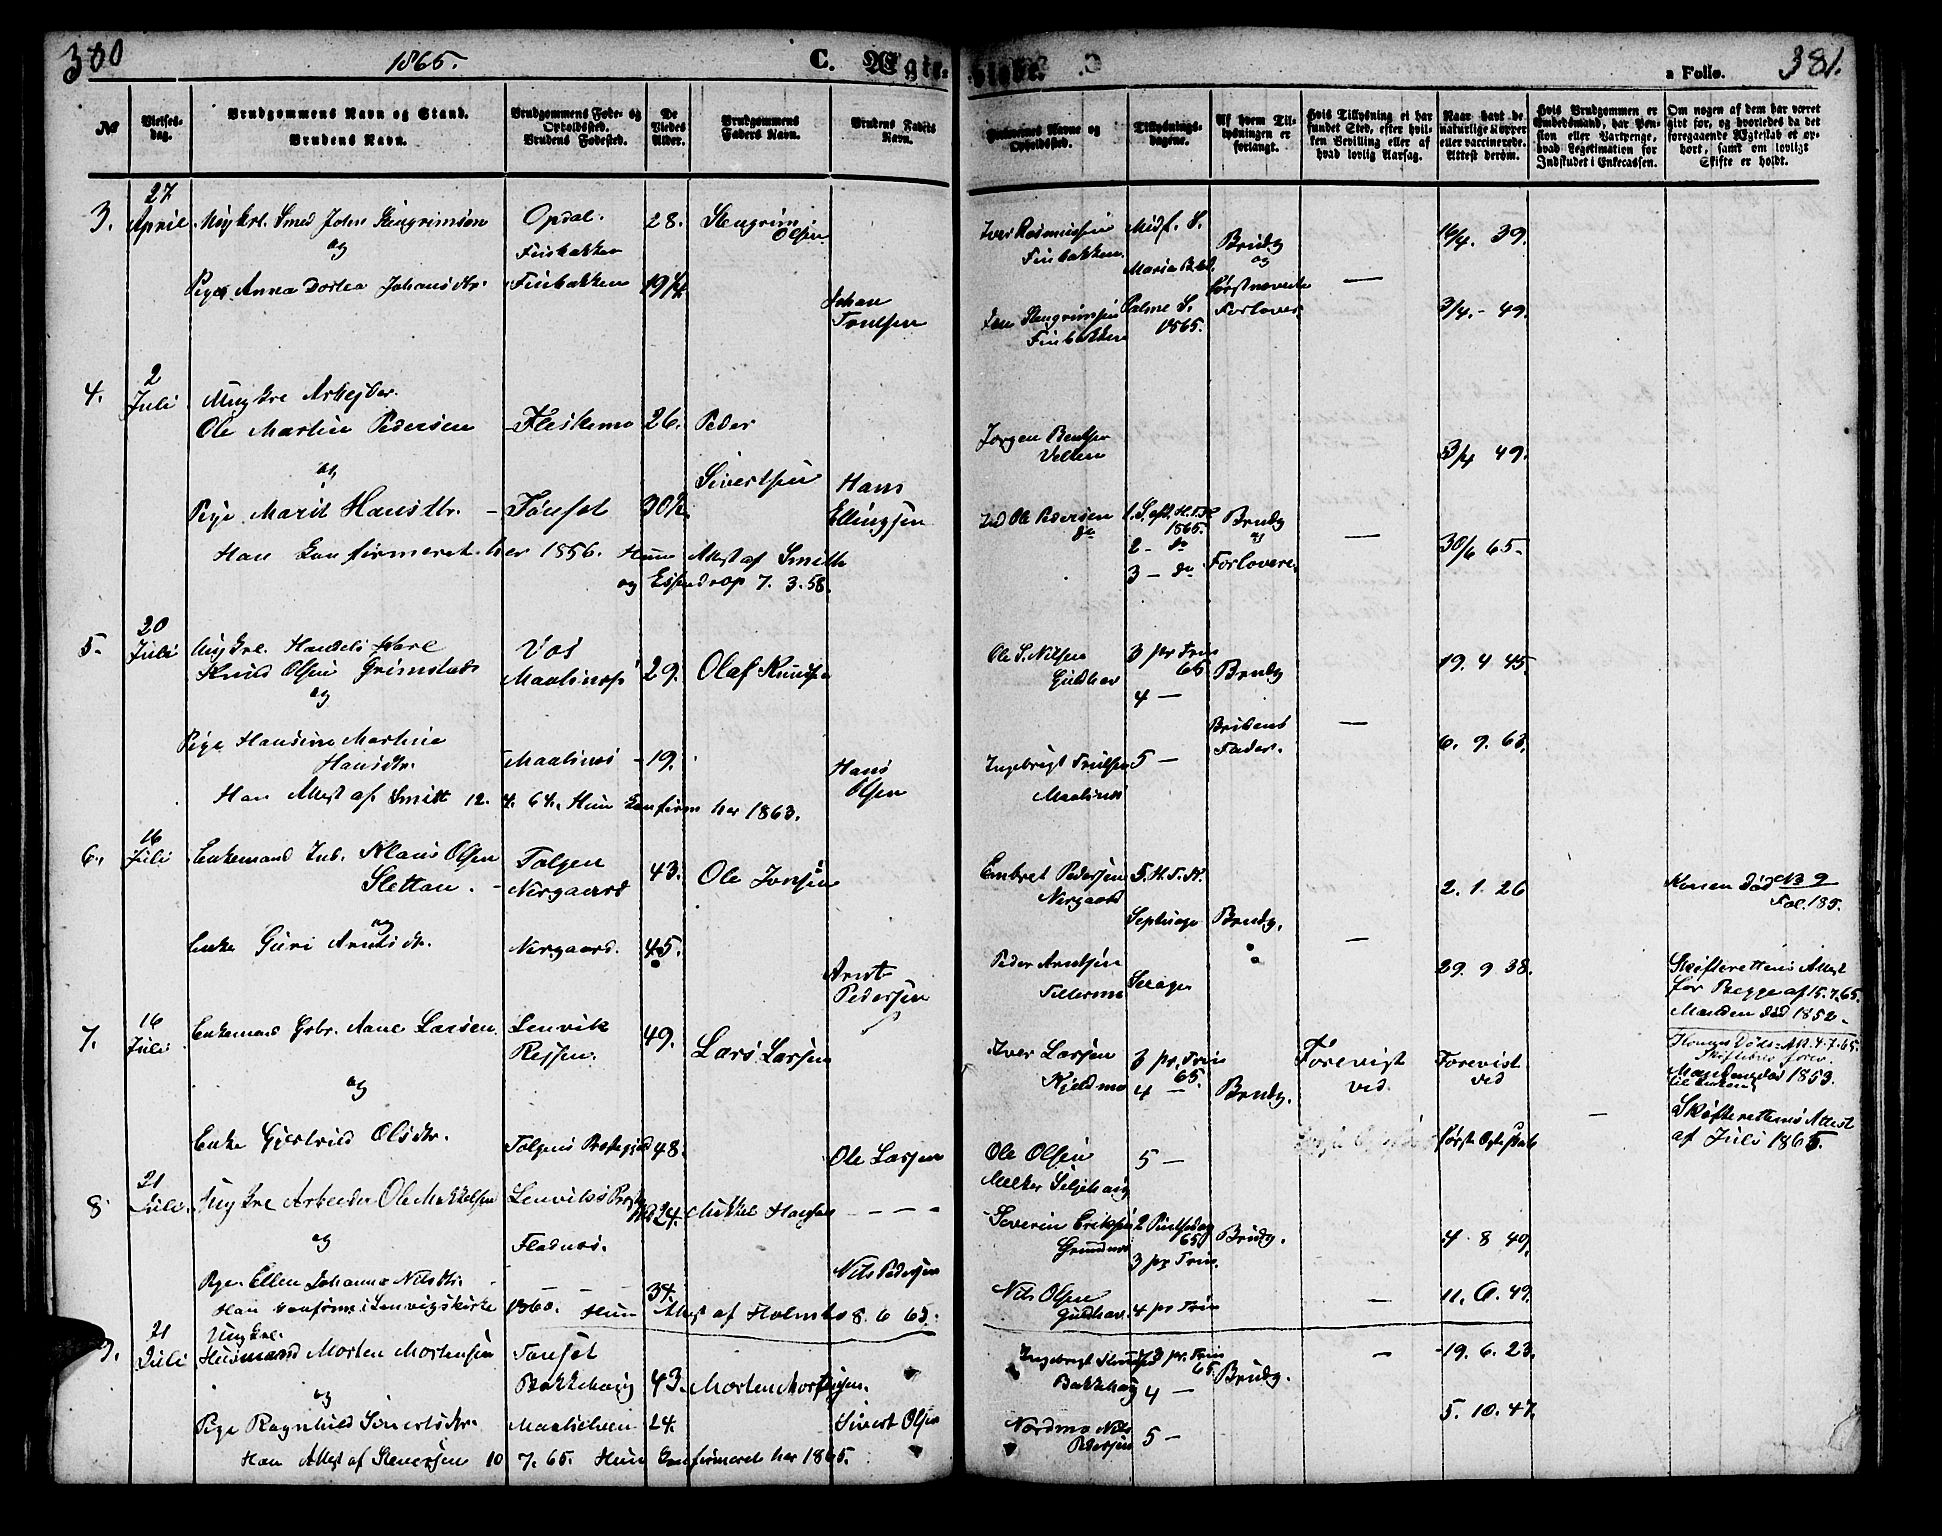 380
1865.
C. Ægte-
skabs.
a Folio.
381.
№
Vielses-
dag.
Brudgommens Navn og Stand.
Brudens Navn.
Brudgommens Føde- og
Opholdssted.
Brudens Fødested.
De
Viedes
Alder.
Brudgommens
Faders Navn.
Brudens Faders
Navn.
Forlovernes Navne og
Opholdssted.
Tillysnings-
dagene.
Af hvem Til-
lysningen er
forlangt.
Hvis Tillysning ei har
fundet Sted, efter hvil-
ken Bevilling eller af
hvad lovlig Aarsag.
Naar havt de
naturlige Kopper
eller vaccinerede.
Attest derom.
Hvis Brudgommen er
Embedsmand, har Pen-
sion eller Vartpenge,
hvad Legitimation for
Indskudet i Enkecassen.
Om nogen af dem har været
gift før, og hvorledes da det
foregaaende Ægteskab er op-
hørt, samt om lovligt
Skifte er holdt.
3.
27
April
Ungkrl. Smed John Stengrimsen
og
Pige Anna Dortea Johansdtr.
Opdal.
Finbakken
Finbakken
28.
19¼
Stengrim
Olsen
Johan
Troelsen
Iver Rasmussen
Finbakken.
Iver Stengrimsen
Finbakken
Midf. S.
Maria B.bd.
Palme S.
1865.
Brudg
og
førstnævnte
Forlover
—
16/4. 39.
3/4. - 49.
4.
2
Juli
Ungkrl Arbejder.
Ole Martin Pedersen
og
Pige Marit Hansdtr.
Fleskemo
Tønset
26.
30½
Peder
Sivertsen
Hans
Ellingsen
Han Konfirmeret her 1856. Hun Attest af Smith
og Essendrop 7. 3. 58.
Jørgen Bentsen
Velten
Ole Pedersen
do
1. S. eft. H.T.K
1865.
2 - do
3 - do
Brudg
og
Forlovere.
—
3/4 49.
30/6 65-
5.
20
Juli
Ungkrl. Handels karl
Knud Olsen Grimstad
og
Pige Hansine Martine
Hansdtr.
Vos
Maalsnes
Maalsnes
29.
19.
Olaf Knudsen
Hans
Olsen
Han Attest af Smitt 12. 4. 64. Hun Konfirm her 1863.
Ole S. Nilsen
Guldhav
Ingebrigt Troelsen
Maalsnes
3 pr Trin
65
4 —
5 —
Brudg
Brudens
Fader.
—
19. 4 45.
6. 9. 63.
6.
16
Juli
Enkemand Inb. Klaus Olsen
Slettan.
og
Enke Guri Arntsdtr.
Tolgen
Nergaard
Nergaard.
43.
45.
Ole Jonsen
Arnt
Pedersen
Embret Pedersen
Nergaard
Peder Arntsen
Fellermo
5. H. T. K.
Septuage
Sexage
Brudg.
—
2. 1. 26
29. 9 38.
Konen død № 9
Fol. 185.
Skifterettens Attest
for Begge af 15. 7. 65.
Manden død 1852.
7.
16
Juli
Enkemand Grbr. Aane Larsen
og
Enke Gjertrud Olsdtr.
Lenvik
Rejsen.
Tolgens Præstegjeld
49.
48.
Lars Larsen
Ole Larsen
Iver Larsen
Kjeldmo
Ole Olsen
3 pr. Trin
65.
4 —
5 —
Brudg.
Forevist
ved
Forevist
ved
første Ægteskab
—
Manden død 1853.
Skifterettens Attest
af Juli 1865.
8
21
Juli
Ungkrl Arbeider Ole Mikkelsen
og
Pige Ellen Johanna Nilsdtr.
Lenviks Prgj
Fladnes.
— —
24.
34.
Mikkel Hansen
— — —
Nils Pedersen
Han konfirm i Lenvigs kirke 1860. Hun Attest af Holmbo 8. 6 65.
Melker Seljehaug
Severin Eriksen
Grundnes
Nils Olsen
Guldhav.
2 Pintsedag
65
3 pr Trin.
4 pr Trin
Brudg.
—
4. 8 40.
11. 6. 49.
9.
21
Juli
Ungkrl.
Husmand Morten Mortensen
og
Pige Ragnhild Sivertsdtr.
Tønset
Bakkehaug
Maalselven
43.
24.
Morten Mortensen.
Sivert Olsen
Han Attest af Stenersen 10 7. 65. Hun Konfirmeret her 1865.
Bakkehaug
Nordmo Nils
Pedersen
3 pr. Trin
65.
4 —
5 —
Brudg.
—
19. 6. 23.
5. 10. 47.